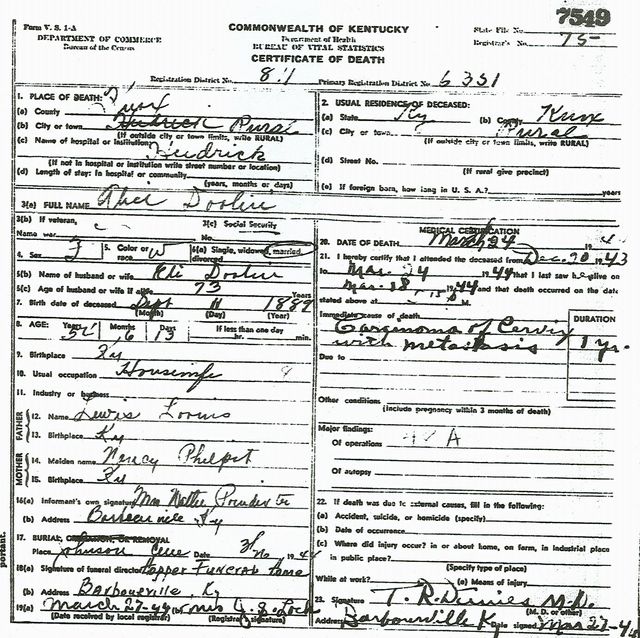 7549
Form V. S. 1-A
COMMONWEALTH OF KENTUCKY
State File No.
DEPARTMENT OF COMMERCE
Department of Health
Bureau of the Census
BUREAU OF VITAL STATISTICS
Registrar's No. 75
CERTIFICATE OF DEATH
Registration District No. 81 Primary Registration District No. 6331
1. PLACE OF DEATH:
(a) County Knox
(b) City or town Hedrick Rural
(If outside city or town limits, write RURAL)
(c) Name of hospital or institution: Hedrick
(If not in hospital or institution write street number or location)
(d) Length of stay: In hospital or community
(years, months or days)
2. USUAL RESIDENCE OF DECEASED:
(a) State Ky (b) County Knox
(c) City or town Rural
(If outside city or town limits, write RURAL)
(d) Street No.
(If rural give precinct)
(e) If foreign born, how long in U. S. A.? years
3(a) FULL NAME
3(b) If veteran,
Name war
3(c) Social Security
No.
4. Sex F 5. Color or race W 6(a) Single, widowed, married, divorced
5(b) Name of husband or wife
5(c) Age of husband or wife if alive 73 Years
7. Birth date of deceased Sept 11 1889
(Month) (Day) (Year)
8. AGE: Years 54 Months 6 Days 13 If less than one day hr. min.
9. Birthplace Ky
10. Usual occupation Housewife
11. Industry or business
FATHER
12. Name Lewis
13. Birthplace Ky
MOTHER
14. Maiden name Nancy Philpot
15. Birthplace Ky
16(a) Informant's own signature Mrs
(b) Address Barbourville Ky
17. BURIAL, CREMATION, OR REMOVAL
Place Johnson Cem Date
18(a) Signature of funeral director Hopper Funeral Home
(b) Address Barbourville, Ky
19(a) March 27-44 (b) Mrs
(Date received by local registrar) (Registrar's signature)
MEDICAL CERTIFICATION
20. DATE OF DEATH March 24 19
21. I hereby certify that I attended the deceased from Dec. 20 1943
to Mar. 24 1944 that I last saw her alive on
Mar. 1944 and that death occurred on the date
stated above at M.
Immediate cause of death
DURATION
Carcinoma of Cervix
with metastasis 1 yr.
Due to
Other conditions
(Include pregnancy within 3 months of death)
Major findings:
Of operations
Of autopsy
22. If death was due to external causes, fill in the following:
(a) Accident, suicide, or homicide (specify)
(b) Date of occurrence
(c) Where did injury occur? in or about home, on farm, in industrial place
in public place?
(Specify type of place)
While at work? (a) Means of injury
23. Signature T. R. Davies M.D.
(M. D. or other)
Address Barbourville Ky Date signed Mar 27-4
portant.